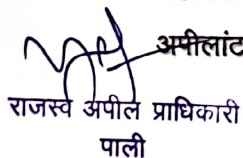 अपीलांट
राजस्व अपील प्राधिकारी
पाली